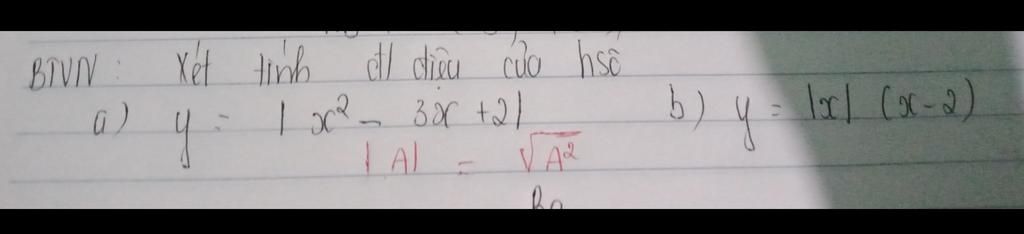 BTVN: Xét tính đđ điệu của hsố
a) y = |x² - 3x + 2| b) y = |x| (x-2)
|A| = √A²